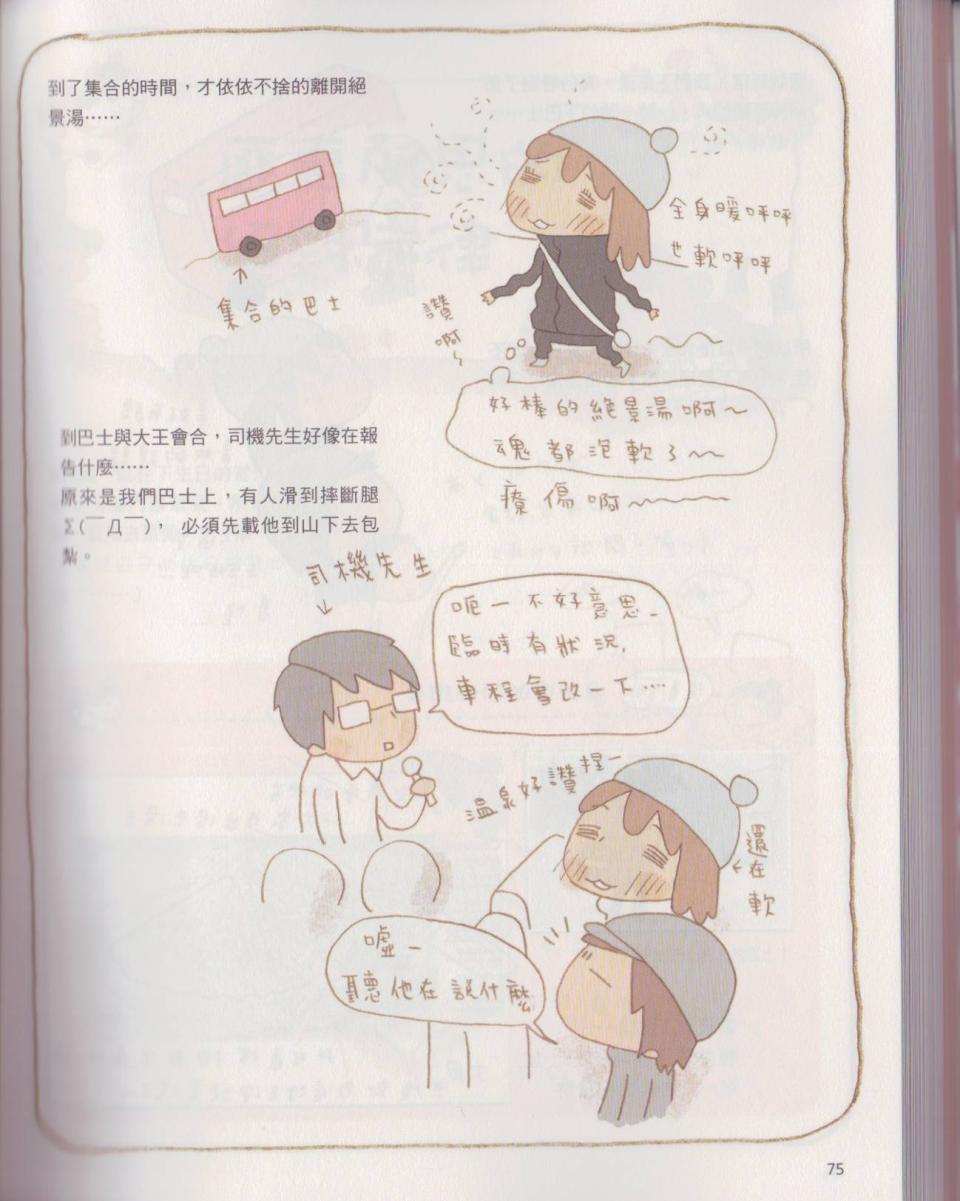 到了集合的時間，才依依不捨的離開絕
景湯⋯⋯
全身暖呼呼
也軟呼呼
集合的巴士
讚
啊～
好棒的絕景湯啊～
魂都泡軟了～～
療傷啊～～～～
到巴士與大王會合，司機先生好像在報
告什麼⋯⋯
原來是我們巴士上，有人滑到摔斷腿
Σ(￣Д￣)，必須先載他到山下去包
紮。
司機先生
呃－不好意思－
臨時有狀況，
車程會改一下⋯⋯
溫泉好讚捏－
還在
軟
噓－
聽他在說什麼
75